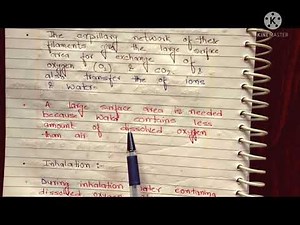 The capillary network of these
filaments the large surface
area for exchange of
oxygen (O2) & CO2 &
also transfer the of ions
& water.
KINEMASTER
A large surface area is needed
because water contains less
amount of dissolved oxygen
than air
Inhalation :-
During inhalation water containing
dissolved oxygen